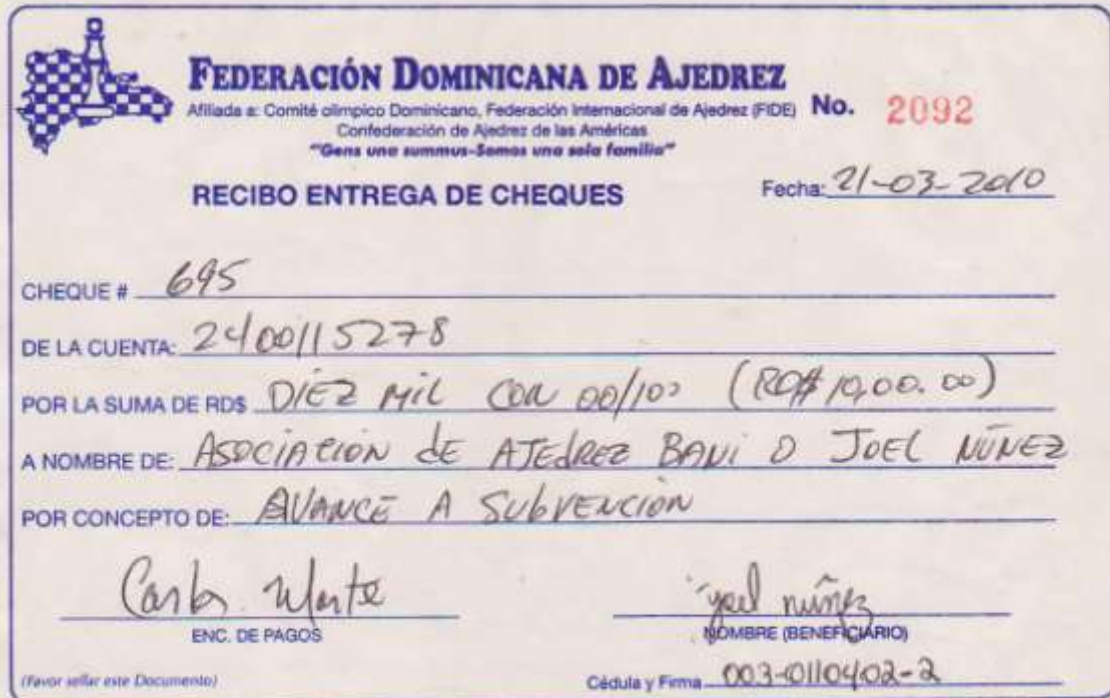 FEDERACIÓN DOMINICANA DE AJEDREZ
Afiliada a: Comité olimpico Dominicano, Federación Internacional de Ajedrez (FIDE) No. 2092
Confederación de Ajedrez de las Américas
"Gens una summus-Somos una sola familia"
RECIBO ENTREGA DE CHEQUES Fecha: 21-03-2010
CHEQUE # 695
DE LA CUENTA: 2400115278
POR LA SUMA DE RD$ DIEZ MIL CON 00/100 (RD$ 10,00.00)
A NOMBRE DE: ASOCIACION dE AJEdREZ BANI O JOEL NÚÑEZ
POR CONCEPTO DE: AVANCE A SUbVENCION
Carlos Marte yoel núñez
ENC. DE PAGOS NOMBRE (BENEFICIARIO)
(Favor sellar este Documento) Cédula y Firma 003-0110402-2